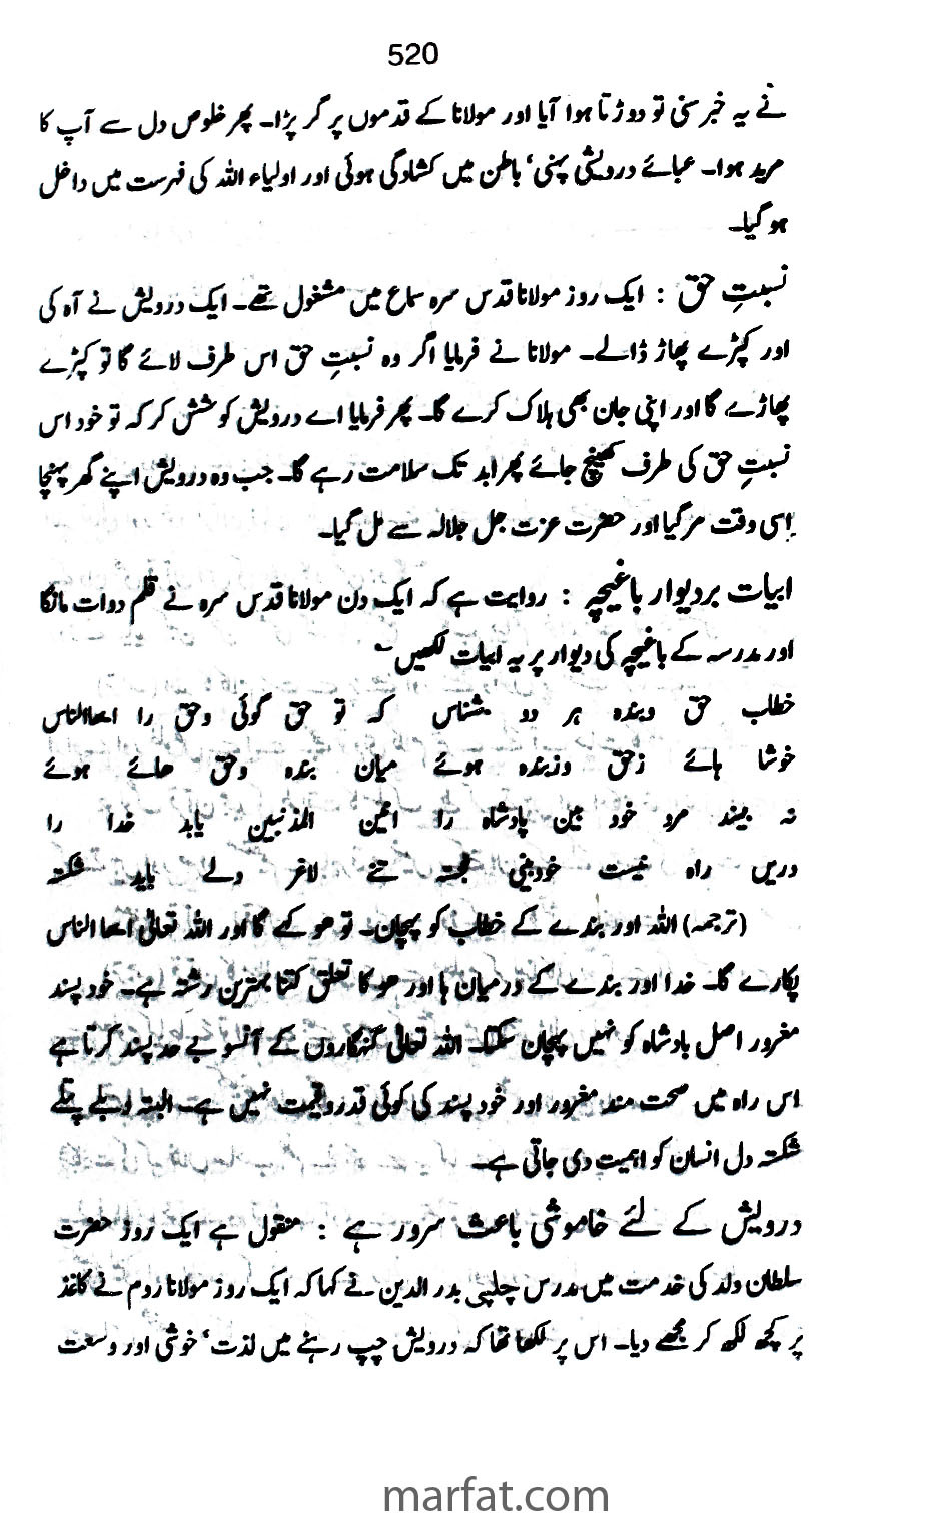 520
نے یہ خبر سنی تو دوڑتا ہوا آیا اور مولانا کے قدموں پر گر پڑا۔ پھر خلوص دل سے آپ کا
مرید ہوا۔ عبائے درویشی پہنی‘ باطن میں کشادگی ہوئی اور اولیاء اللہ کی فہرست میں داخل
ہو گیا۔
نسبتِ حق : ایک روز مولانا قدس سرہ سماع میں مشغول تھے۔ ایک درویش نے آہ کی
اور کپڑے پھاڑ ڈالے۔ مولانا نے فرمایا اگر وہ نسبتِ حق اس طرف لائے گا تو کپڑے
پھاڑے گا اور اپنی جان بھی ہلاک کرے گا۔ پھر فرمایا اے درویش کوشش کر کہ تو خود اس
نسبتِ حق کی طرف کھینچ جائے پھر ابد تک سلامت رہے گا۔ جب وہ درویش اپنے گھر پہنچا
اِسی وقت مر گیا اور حضرت عزت جل جلالہ سے مل گیا۔
ابیات بر دیوار باغیچہ : روایت ہے کہ ایک دن مولانا قدس سرہ نے قلم دوات مانگا
اور مدرسہ کے باغیچہ کی دیوار پر یہ ابیات لکھیں ؎
خطاب حق وبندہ ہر دو شناس کہ تو حق گوئی وحق را ایھا الناس
خوشا ہائے زحق وزبندہ ہوئے میان بندہ وحق ہائے ہوئے
نہ بیند مرد خود بین پادشاہ را انین المذنبین یابد خدا را
دریں راہ نیست خودبینی خجستہ تنے لاغر دلے باید شکستہ
(ترجمہ) اللہ اور بندے کے خطاب کو پہچان۔ تو ھو کہے گا اور اللہ تعالیٰ ایھا الناس
پکارے گا۔ خدا اور بندے کے درمیان ہا اور ھو کا تعلق کتنا بہترین رشتہ ہے۔ خود پسند
مغرور اصل بادشاہ کو نہیں پہچان سکتا۔ اللہ تعالیٰ گنہگاروں کے آنسو بے حد پسند کرتا ہے
اس راہ میں صحت مند مغرور اور خود پسند کی کوئی قدر وقیمت نہیں ہے۔ البتہ دبلے پتلے
شکستہ دل انسان کو اہمیت دی جاتی ہے۔
درویش کے لئے خاموشی باعث سرور ہے : منقول ہے ایک روز حضرت
سلطان ولد کی خدمت میں مدرس چلپی بدر الدین نے کہا کہ ایک روز مولانا روم نے کاغذ
پر کچھ لکھ کر مجھے دیا۔ اس پر لکھا تھا کہ درویش چپ رہنے میں لذت‘ خوشی اور وسعت
marfat.com